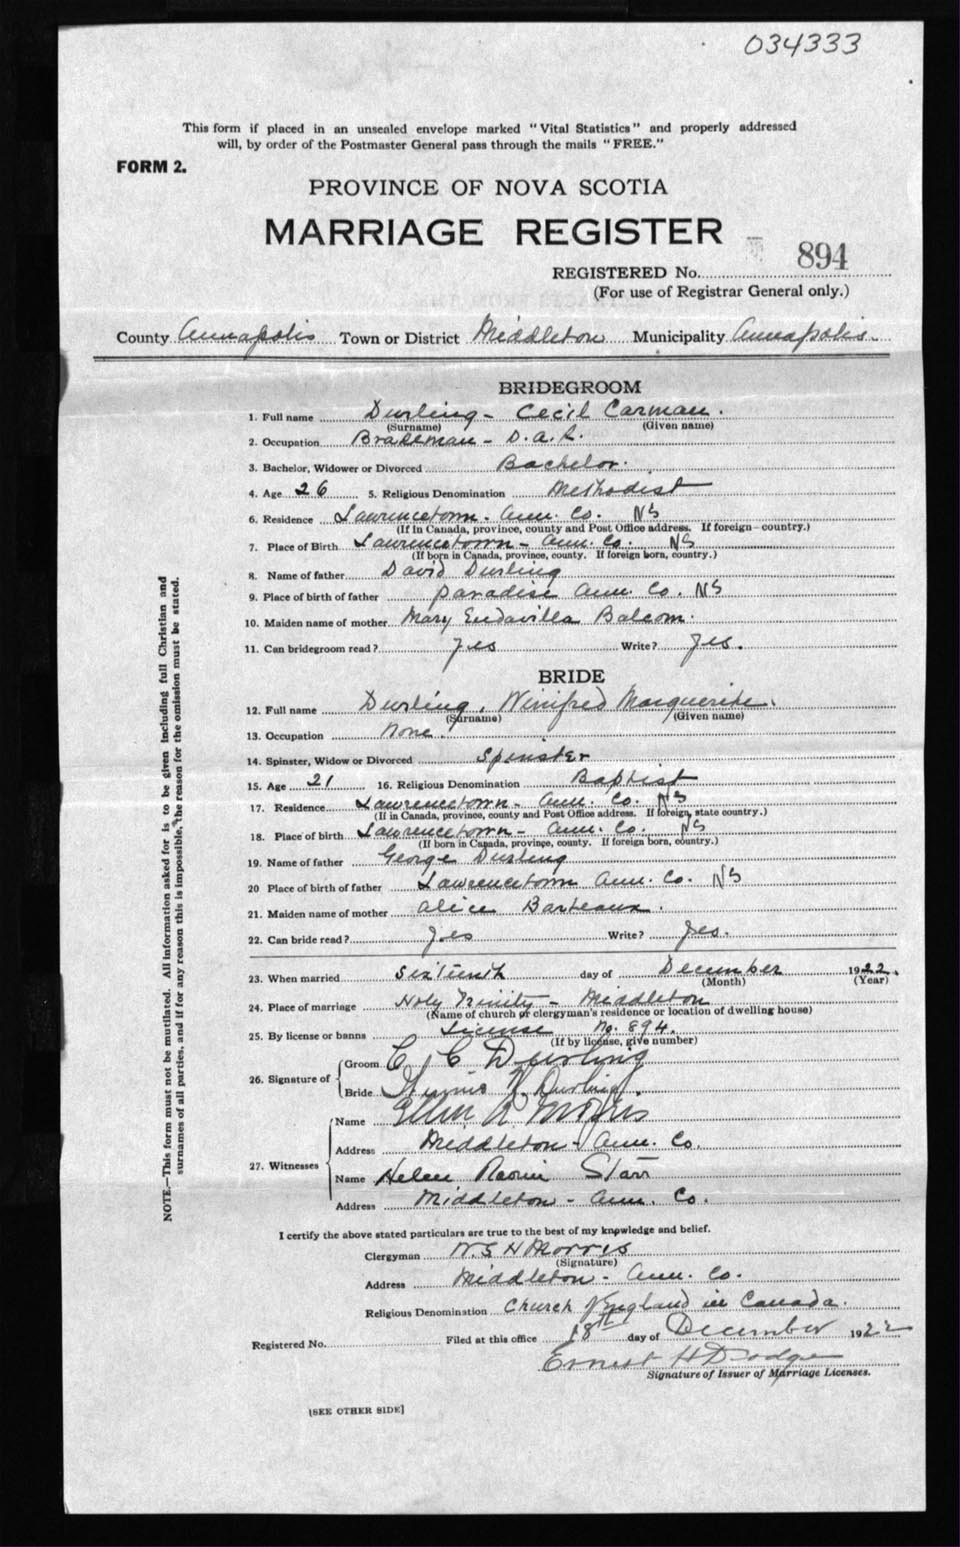 034333
This form if placed in an unsealed envelope marked "Vital Statistics" and properly addressed
will, by order of the Postmaster General pass through the mails "FREE."
FORM 2.
PROVINCE OF NOVA SCOTIA
MARRIAGE REGISTER
REGISTERED No. 894
(For use of Registrar General only.)
County Annapolis Town or District Middleton Municipality Annapolis
BRIDEGROOM
1. Full name Durling - Cecil Carman.
(Surname) (Given name)
2. Occupation Brakeman - D.A.R.
3. Bachelor, Widower or Divorced Bachelor.
4. Age 26 5. Religious Denomination Methodist
6. Residence Lawrencetown. Ann. Co. NS
(If in Canada, province, county and Post Office address. If foreign—country.)
7. Place of Birth Lawrencetown - Ann. Co. NS
(If born in Canada, province, county. If foreign born, country.)
8. Name of father David Durling
9. Place of birth of father Paradise Ann. Co. NS
10. Maiden name of mother Mary Balcom.
11. Can bridegroom read? Yes Write? Yes.
BRIDE
12. Full name Durling, Winifred Marguerite.
(Surname) (Given name)
13. Occupation None.
14. Spinster, Widow or Divorced Spinster
15. Age 21 16. Religious Denomination Baptist
17. Residence Lawrencetown - Ann. Co. NS
(If in Canada, province, county and Post Office address. If foreign, state country.)
18. Place of birth Lawrencetown - Ann. Co. NS
(If born in Canada, province, county. If foreign born, country.)
19. Name of father George Durling
20 Place of birth of father Lawrencetown Ann. Co. NS
21. Maiden name of mother Alice Barteaux.
22. Can bride read? Yes Write? Yes.
23. When married Sixteenth day of December 1922.
(Month) (Year)
24. Place of marriage Holy Trinity - Middleton
(Name of church or clergyman's residence or location of dwelling house)
25. By license or banns License No. 894.
(If by license, give number)
26. Signature of Groom C C Durling
Bride Durling
27. Witnesses Name Morris
Address Middleton - Ann. Co.
Name Helen Starr
Address Middleton - Ann. Co.
I certify the above stated particulars are true to the best of my knowledge and belief.
Clergyman W.S H Morris
(Signature)
Address Middleton - Ann. Co.
Religious Denomination Church of England in Canada.
Registered No. Filed at this office 18th day of December 1922
Ernest H Dodge
Signature of Issuer of Marriage Licenses.
[SEE OTHER SIDE]
NOTE.—This form must not be mutilated. All information asked for is to be given including full Christian and
surnames of all parties, and if for any reason this is impossible, the reason for the omission must be stated.